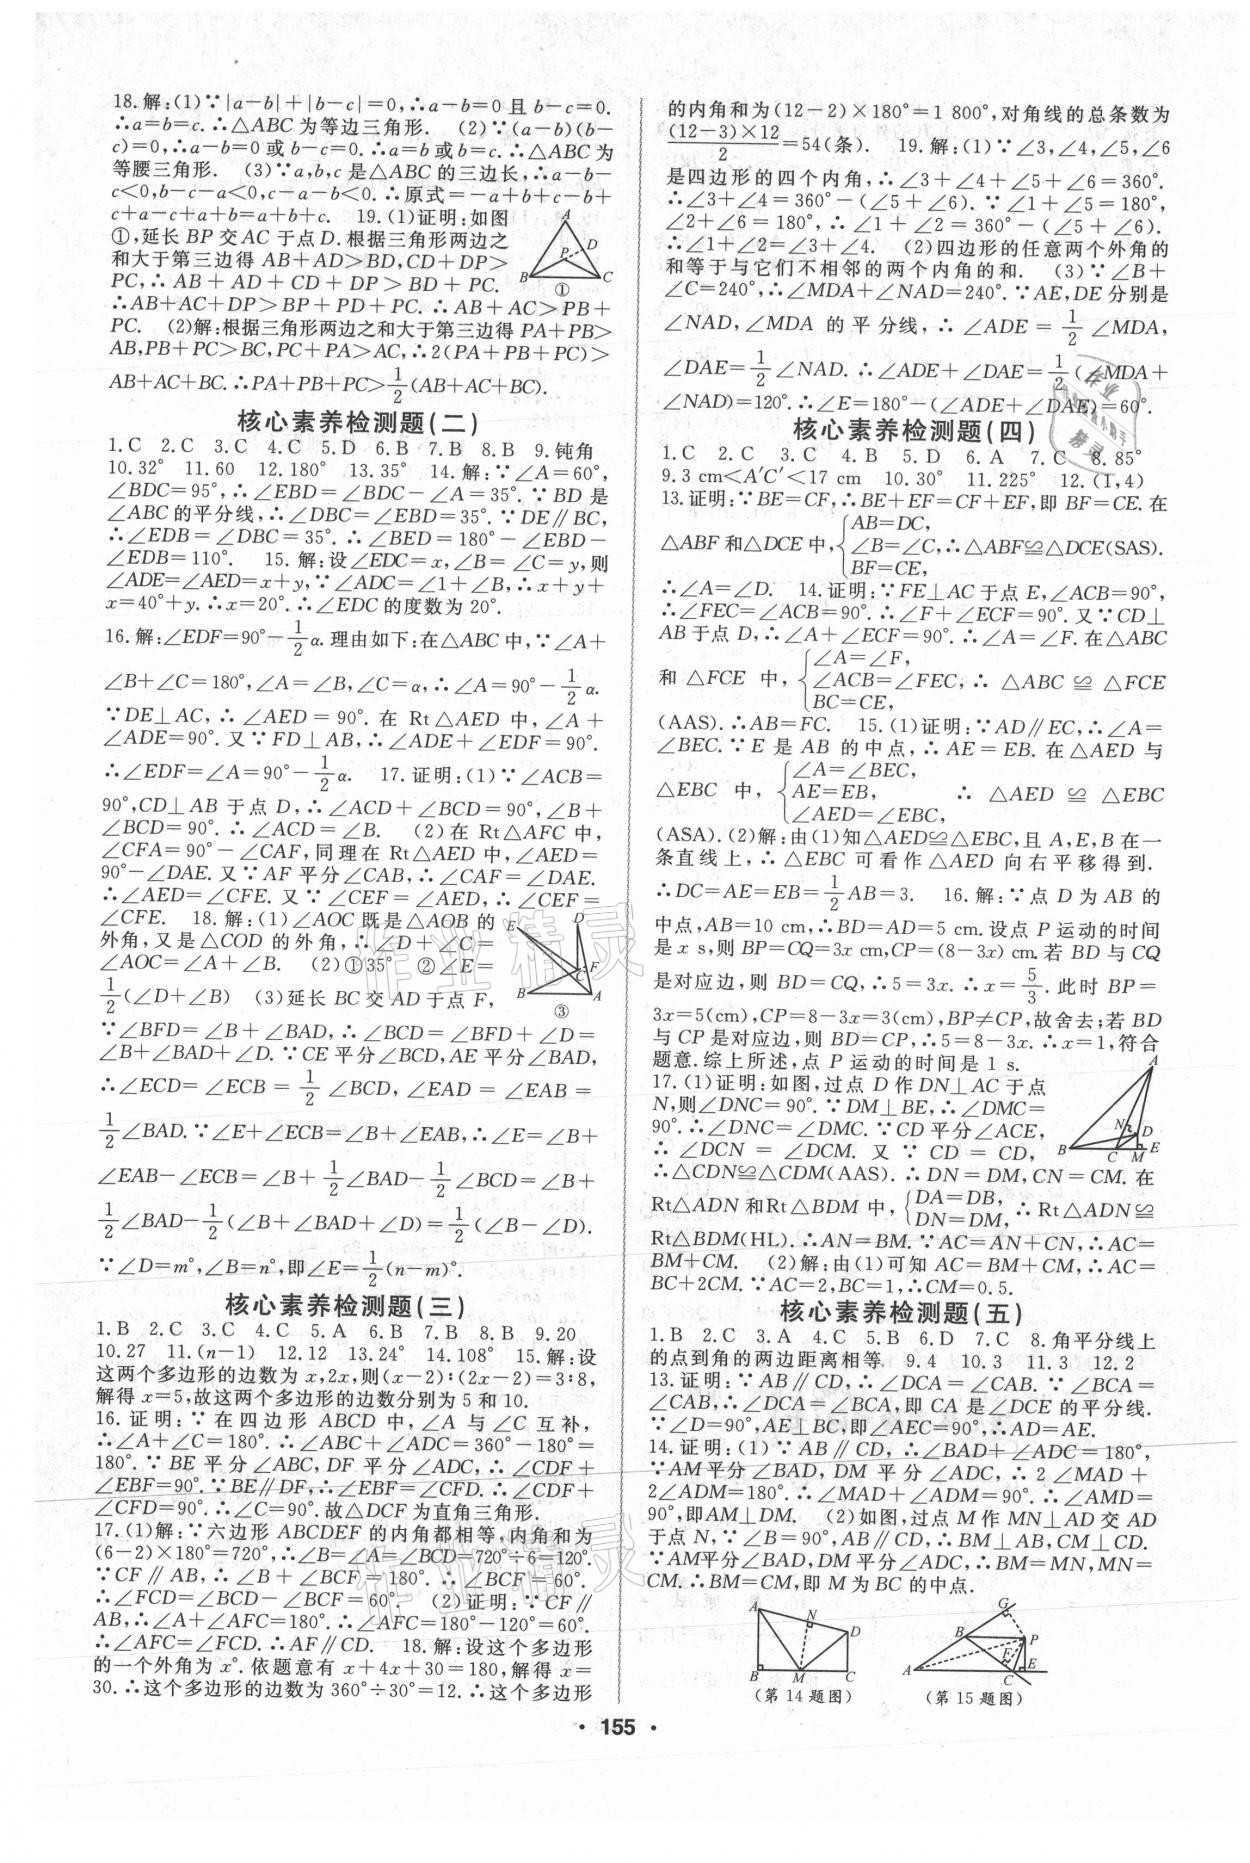 18.解:(1)∵|a-b|+|b-c|=0,∴a-b=0 且 b-c=0.
∴a=b=c.∴△ABC 为等边三角形. (2)∵(a-b)(b-
c)=0,∴a-b=0 或 b-c=0.∴a=b 或 b=c.∴△ABC 为
等腰三角形. (3)∵a,b,c 是△ABC 的三边长,∴a-b-
c<0,b-c-a<0,c-a-b<0.∴原式=-a+b+c-b+
c+a-c+a+b=a+b+c. 19.(1)证明:如图
①,延长 BP 交 AC 于点 D.根据三角形两边之
和大于第三边得 AB+AD>BD,CD+DP>
PC,∴AB+AD+CD+DP>BD+PC.
∴AB+AC+DP>BP+PD+PC.∴AB+AC>PB+
PC. (2)解:根据三角形两边之和大于第三边得 PA+PB>
AB,PB+PC>BC,PC+PA>AC,∴2(PA+PB+PC)>
AB+AC+BC.∴PA+PB+PC>1/2(AB+AC+BC).
A
D
P
B
C
①
核心素养检测题(二)
1.C 2.C 3.C 4.C 5.D 6.B 7.B 8.B 9.钝角
10.32° 11.60 12.180° 13.35° 14.解:∵∠A=60°,
∠BDC=95°,∴∠EBD=∠BDC-∠A=35°.∵BD 是
∠ABC的平分线,∴∠DBC=∠EBD=35°.∵DE∥BC,
∴∠EDB=∠DBC=35°.∴∠BED=180°-∠EBD-
∠EDB=110°. 15.解:设∠EDC=x,∠B=∠C=y,则
∠ADE=∠AED=x+y,∵∠ADC=∠1+∠B,∴x+y+
x=40°+y.∴x=20°.∴∠EDC 的度数为 20°.
16.解:∠EDF=90°-1/2α.理由如下:在△ABC 中,∵∠A+
∠B+∠C=180°,∠A=∠B,∠C=α,∴∠A=90°-1/2α.
∵DE⊥AC,∴∠AED=90°.在 Rt△AED 中,∠A+
∠ADE=90°.又∵FD⊥AB,∴∠ADE+∠EDF=90°.
∴∠EDF=∠A=90°-1/2α. 17.证明:(1)∵∠ACB=
90°,CD⊥AB 于点 D,∴∠ACD+∠BCD=90°,∠B+
∠BCD=90°.∴∠ACD=∠B. (2)在 Rt△AFC 中,
∠CFA=90°-∠CAF,同理在 Rt△AED 中,∠AED=
90°-∠DAE.又∵AF 平分∠CAB,∴∠CAF=∠DAE.
∴∠AED=∠CFE.又∵∠CEF=∠AED,∴∠CEF=
∠CFE. 18.解:(1)∠AOC 既是△AOB 的
外角,又是△COD 的外角,∴∠D+∠C=
∠AOC=∠A+∠B. (2)①35° ②∠E=
1/2(∠D+∠B) (3)延长 BC 交 AD 于点 F,
∵∠BFD=∠B+∠BAD,∴∠BCD=∠BFD+∠D=
∠B+∠BAD+∠D.∵CE 平分∠BCD,AE 平分∠BAD,
∴∠ECD=∠ECB=1/2∠BCD,∠EAD=∠EAB=
1/2∠BAD.∵∠E+∠ECB=∠B+∠EAB,∴∠E=∠B+
∠EAB-∠ECB=∠B+1/2∠BAD-1/2∠BCD=∠B+
1/2∠BAD-1/2(∠B+∠BAD+∠D)=1/2(∠B-∠D).
∵∠D=m°,∠B=n°,即∠E=1/2(n-m)°.
E
D
C
F
B
A
③
核心素养检测题(三)
1.B 2.C 3.C 4.C 5.A 6.B 7.B 8.B 9.20
10.27 11.(n-1) 12.12 13.24° 14.108° 15.解:设
这两个多边形的边数为 x,2x,则(x-2):(2x-2)=3:8,
解得 x=5,故这两个多边形的边数分别为 5 和 10.
16.证明:∵在四边形 ABCD 中,∠A 与∠C 互补,
∴∠A+∠C=180°.∴∠ABC+∠ADC=360°-180°=
180°.∵BE 平分∠ABC,DF 平分∠ADC,∴∠CDF+
∠EBF=90°.∵BE∥DF,∴∠EBF=∠CFD.∴∠CDF+
∠CFD=90°.∴∠C=90°.故△DCF 为直角三角形.
17.(1)解:∵六边形 ABCDEF 的内角都相等,内角和为
(6-2)×180°=720°,∴∠B=∠A=∠BCD=720°÷6=120°.
∵CF∥AB,∴∠B+∠BCF=180°.∴∠BCF=60°.
∴∠FCD=∠BCD-∠BCF=60°. (2)证明:∵CF∥
AB,∴∠A+∠AFC=180°.∴∠AFC=180°-120°=60°.
∴∠AFC=∠FCD.∴AF∥CD. 18.解:设这个多边形
的一个外角为 x°.依题意有 x+4x+30=180,解得 x=
30.∴这个多边形的边数为 360°÷30°=12.∴这个多边形
的内角和为(12-2)×180°=1 800°,对角线的总条数为
(12-3)×12/2=54(条). 19.解:(1)∵∠3,∠4,∠5,∠6
是四边形的四个内角,∴∠3+∠4+∠5+∠6=360°.
∴∠3+∠4=360°-(∠5+∠6).∵∠1+∠5=180°,
∠2+∠6=180°,∴∠1+∠2=360°-(∠5+∠6).
∴∠1+∠2=∠3+∠4. (2)四边形的任意两个外角的
和等于与它们不相邻的两个内角的和. (3)∵∠B+
∠C=240°,∴∠MDA+∠NAD=240°.∵AE,DE 分别是
∠NAD,∠MDA 的平分线,∴∠ADE=1/2∠MDA,
∠DAE=1/2∠NAD.∴∠ADE+∠DAE=1/2(∠MDA+
∠NAD)=120°.∴∠E=180°-(∠ADE+∠DAE)=60°.
核心素养检测题(四)
1.C 2.C 3.C 4.B 5.D 6.A 7.C 8.85°
9.3 cm<A′C′<17 cm 10.30° 11.225° 12.(1,4)
13.证明:∵BE=CF,∴BE+EF=CF+EF,即 BF=CE.在
△ABF 和△DCE 中,{AB=DC,
∠B=∠C,∴△ABF≌△DCE(SAS).
BF=CE,
∴∠A=∠D. 14.证明:∵FE⊥AC 于点 E,∠ACB=90°,
∴∠FEC=∠ACB=90°.∴∠F+∠ECF=90°.又∵CD⊥
AB 于点 D,∴∠A+∠ECF=90°.∴∠A=∠F.在△ABC
和△FCE 中,{∠A=∠F,
∠ACB=∠FEC,∴△ABC≌△FCE
BC=CE,
(AAS).∴AB=FC. 15.(1)证明:∵AD∥EC,∴∠A=
∠BEC.∵E 是 AB 的中点,∴AE=EB.在△AED 与
△EBC 中,{∠A=∠BEC,
AE=EB, ∴△AED≌△EBC
∠AED=∠EBC,
(ASA).(2)解:由(1)知△AED≌△EBC,且 A,E,B 在一
条直线上,∴△EBC 可看作△AED 向右平移得到.
∴DC=AE=EB=1/2AB=3. 16.解:∵点 D 为 AB 的
中点,AB=10 cm,∴BD=AD=5 cm.设点 P 运动的时间
是 x s,则 BP=CQ=3x cm,CP=(8-3x) cm.若 BD 与 CQ
是对应边,则 BD=CQ,∴5=3x.∴x=5/3.此时 BP=
3x=5(cm),CP=8-3x=3(cm),BP≠CP,故舍去;若 BD
与 CP 是对应边,则 BD=CP,∴5=8-3x.∴x=1,符合
题意.综上所述,点 P 运动的时间是 1 s.
17.(1)证明:如图,过点 D 作 DN⊥AC 于点
N,则∠DNC=90°.∵DM⊥BE,∴∠DMC=
90°.∴∠DNC=∠DMC.∵CD平分∠ACE,
∴∠DCN=∠DCM.又∵CD=CD,
∴△CDN≌△CDM(AAS).∴DN=DM,CN=CM.在
Rt△ADN 和Rt△BDM 中,{DA=DB,
DN=DM,∴Rt△ADN≌
Rt△BDM(HL).∴AN=BM.∵AC=AN+CN,∴AC=
BM+CM. (2)解:由(1)可知 AC=BM+CM,∴AC=
BC+2CM.∵AC=2,BC=1,∴CM=0.5.
A
N
D
B
C
M
E
核心素养检测题(五)
1.B 2.C 3.A 4.C 5.B 6.D 7.C 8.角平分线上
的点到角的两边距离相等 9.4 10.3 11.3 12.2
13.证明:∵AB∥CD,∴∠DCA=∠CAB.∵∠BCA=
∠CAB,∴∠DCA=∠BCA,即 CA 是∠DCE 的平分线.
∵∠D=90°,AE⊥BC,即∠AEC=90°,∴AD=AE.
14.证明:(1)∵AB∥CD,∴∠BAD+∠ADC=180°,
∵AM平分∠BAD,DM 平分∠ADC,∴2∠MAD+
2∠ADM=180°.∴∠MAD+∠ADM=90°.∴∠AMD=
90°,即AM⊥DM. (2)如图,过点 M 作 MN⊥AD 交 AD
于点 N,∵∠B=90°,AB∥CD,∴BM⊥AB,CM⊥CD.
∵AM平分∠BAD,DM 平分∠ADC,∴BM=MN,MN=
CM.∴BM=CM,即 M 为 BC 的中点.
A
N
D
B
M
C
(第 14 题图)
G
B
P
F
A
C
E
(第 15 题图)
· 155 ·
作业精灵
作业精灵